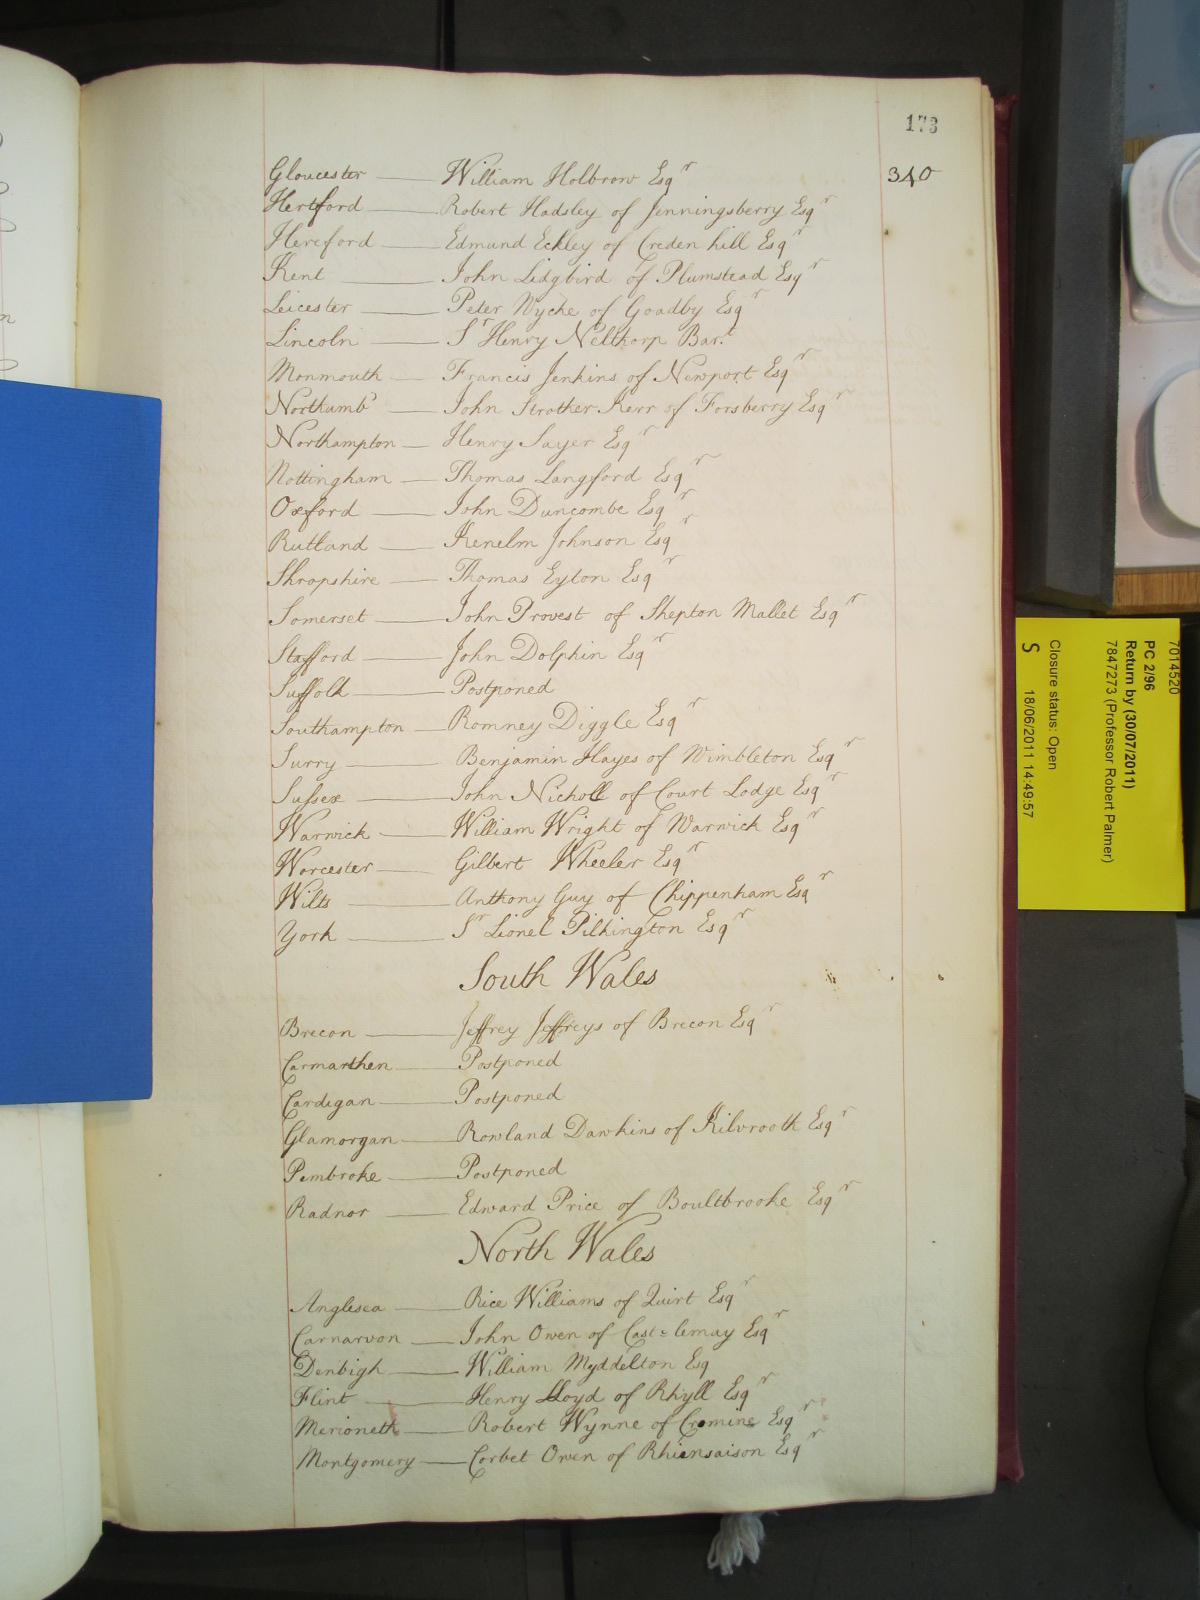 173
340
Gloucester — William Holbrow Esqr
Hertford — Robert Hadsley of Jenningsberry Esqr
Hereford — Edmund Eckley of Creden hill Esqr
Kent — John Lidgbird of Plumstead Esqr
Leicester — Peter Wyche of Goadby Esqr
Lincoln — Sr Henry Nelthorp Bart
Monmouth — Francis Jenkins of Newport Esqr
Northumb' — John Strother Kerr of Forsberry Esqr
Northampton — Henry Sayer Esqr
Nottingham — Thomas Langford Esqr
Oxford — John Duncombe Esqr
Rutland — Kenelm Johnson Esqr
Shropshire — Thomas Eyton Esqr
Somerset — John Provest of Shepton Mallet Esqr
Stafford — John Dolphin Esqr
Suffolk — Postponed
Southampton — Romney Diggle Esqr
Surry — Benjamin Hayes of Wimbleton Esqr
Sussex — John Nicholl of Court Lodge Esqr
Warwick — William Wright of Warwick Esqr
Worcester — Gilbert Wheeler Esqr
Wilts — Anthony Guy of Chippenham Esqr
York — Sr Lionel Pilkington Esqr
South Wales
Brecon — Jeffrey Jeffreys of Brecon Esqr
Carmarthen — Postponed
Cardigan — Postponed
Glamorgan — Rowland Dawkins of Kilvrooth Esqr
Pembroke — Postponed
Radnor — Edward Price of Boultbrooke Esqr
North Wales
Anglesea — Rice Williams of Quirt Esqr
Carnarvon — John Owen of Cast=lemay Esqr
Denbigh — William Myddelton Esq
Flint — Henry Lloyd of Rhyll Esqr
Merioneth — Robert Wynne of Cromine Esqr
Montgomery — Corbet Owen of Rhiensaison Esqr
7014520
PC 2/96
Return by (30/07/2011)
7847273 (Professor Robert Palmer)
Closure status: Open
S 18/06/2011 14:49:57